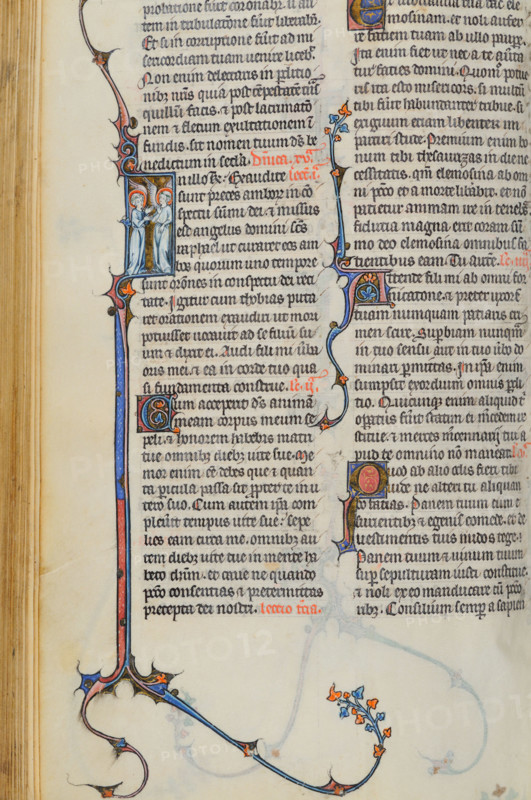 probatione fuerit coronabit̃. si aũ
tem in tribulatione fũit liberabit̃.
Et si in corruptione fũit ad mi
sericordiam tuam uenire licebit.
Non enim delectaris in ꝑditio
nibꝫ nr̃is quia post tempestatẽ
quillũ facis. ⁊ post lacrimatõ
nem ⁊ fletum exultationem ĩ
fundis. sit nomen tuum dñs be
nedictum in secl̃a.
In illo tꝑe. Exaudite lectõ .i.
sunt preces amborũ in cõ
spectu sũmi dei. ⁊ missus
est angelus domini scs̃
raphael ut curaret eos am
bos quorum uno tempore
sunt orõnes in conspectu dei reci
tate. Igitur cum thobias puta
ret orationem exaudiri ut mori
potuisset uocauit ad se filiũ su
um ⁊ dixit ei. Audi fili mi uerba
oris mei. ⁊ ea in corde tuo qua
si fundamenta construe. lc̃. ij.
Cum acceperit dñs animã
meam corpus meum se
peli. ⁊ honorem habebis matri
tue omnibꝫ diebꝫ uite sue. Me
mor enim es̃ debes que ⁊ quan
ta pericula passa sit propter te in u
tero suo. Cum autem ip̃a com
pleuerit tempus uite sue. sepe
lies eam circa me. omnibꝫ au
tem diebꝫ uite tue in mente ha
beto deum. et caue ne quando
pc̃co consentias ⁊ pretermittas
precepta dei nostri. lectio t̃cia.
mosinam. et noli auerte
re faciem tuam ab ullo paupere.
Ita enim fiet ut nec a te auerta
tur facies domini. Quom̃ potue
ris ita esto misericors. si multũ
tibi fũit habundanter tribue. si
exiguum etiam libenter im
partiri stude. Premium enim bo
num tibi thesaurizas in die ne
cessitatis. qm̃ elemosina ab om
ni pc̃co et a morte liberat. et nõ
patietur animam ire in tenebras
fiducia magna erit coram sũ
mo deo elemosina omnibus fa
cientibus eam. Tu autẽ.
Attende fili mi ab omni for
nicatione. ⁊ preter uxorẽ
tuam numquam patiaris cri
men scire. Superbiam nunquã
in tuo sensu aut in tuo uerbo do
minari permittas. In ip̃a enim
sumpsit exordium omnis perdi
tio. Quicunque enim aliquid ti
operatus fũit statim ei mercedẽ re
stitue. ⁊ merces mercennarij tui a
pud te omnino nõ maneat.
Quod ab alio odis fieri tibi
uide ne alteri tu aliquan
do facias. Panem tuum cum e
surientibꝫ ⁊ egenis comede. et de
uestimentis tuis nudos tege.
Panem tuum ⁊ uinum tuum
super sepulturam iusti constitue.
⁊ noli ex eo manducare cũ pc̃co
ribꝫ. Consilium semper a sapien